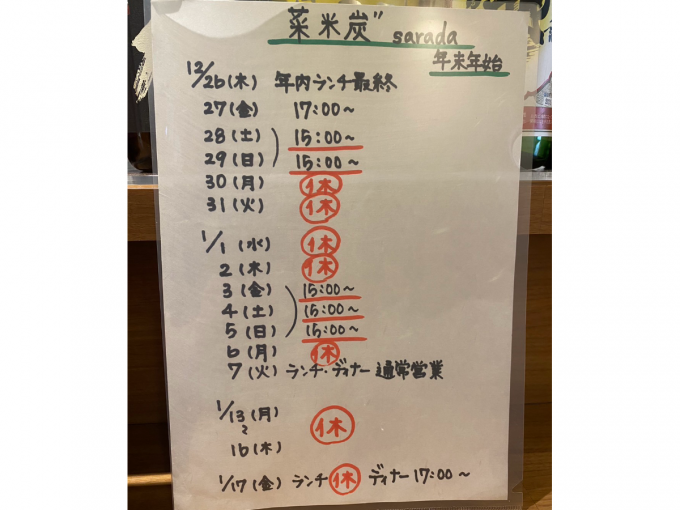 菜米炭" sarada
年末年始
12/26(木) 年内ランチ最終
27(金) 17:00~
28(土) 15:00~
29(日) 15:00~
30(月) 休
31(火) 休
1/1(水) 休
2(木) 休
3(金) 15:00~
4(土) 15:00~
5(日) 15:00~
6(月) 休
7(火) ランチ・ディナー 通常営業
1/13(月)
~ 休
16(木)
1/17(金) ランチ 休 ディナー 17:00~